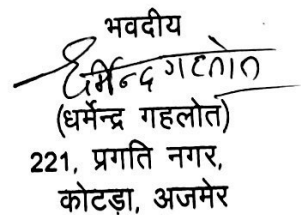 भवदीय
धर्मेन्द्र गहलोत
(धर्मेन्द्र गहलोत)
221, प्रगति नगर,
कोटड़ा, अजमेर